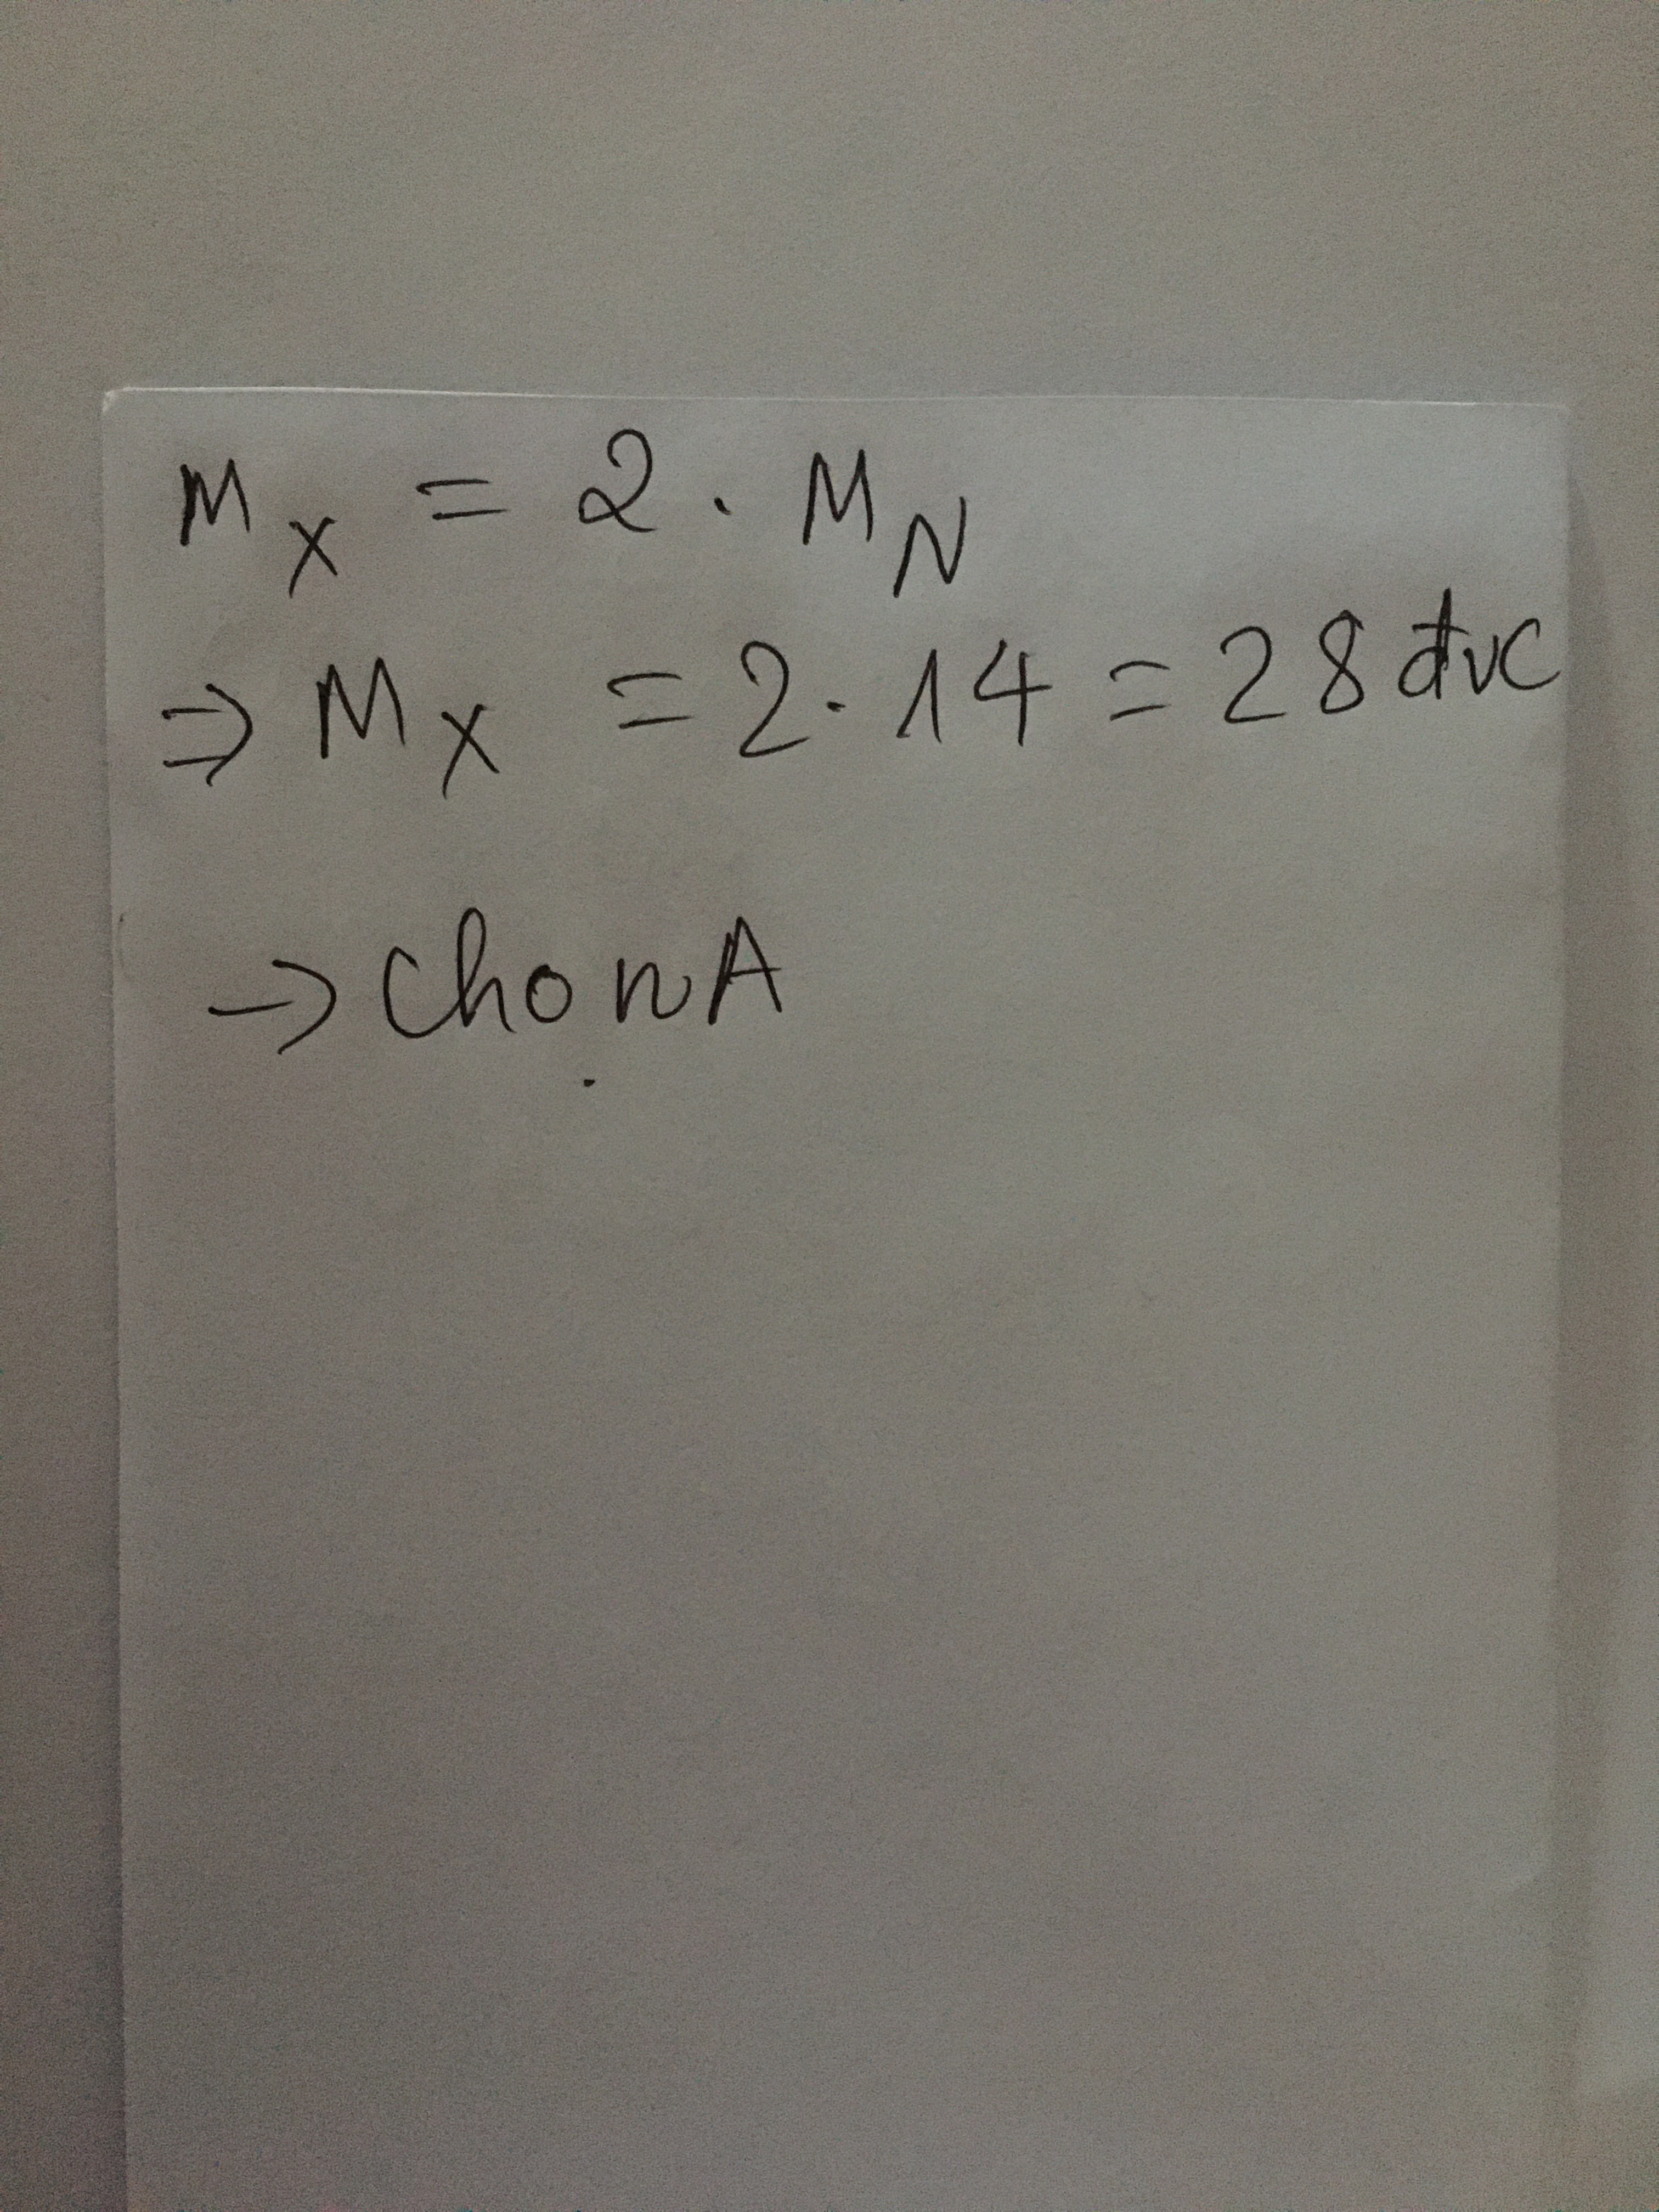 M_X = 2 . M_N
⇒ M_X = 2 . 14 = 28 đvC
→ Chọn A